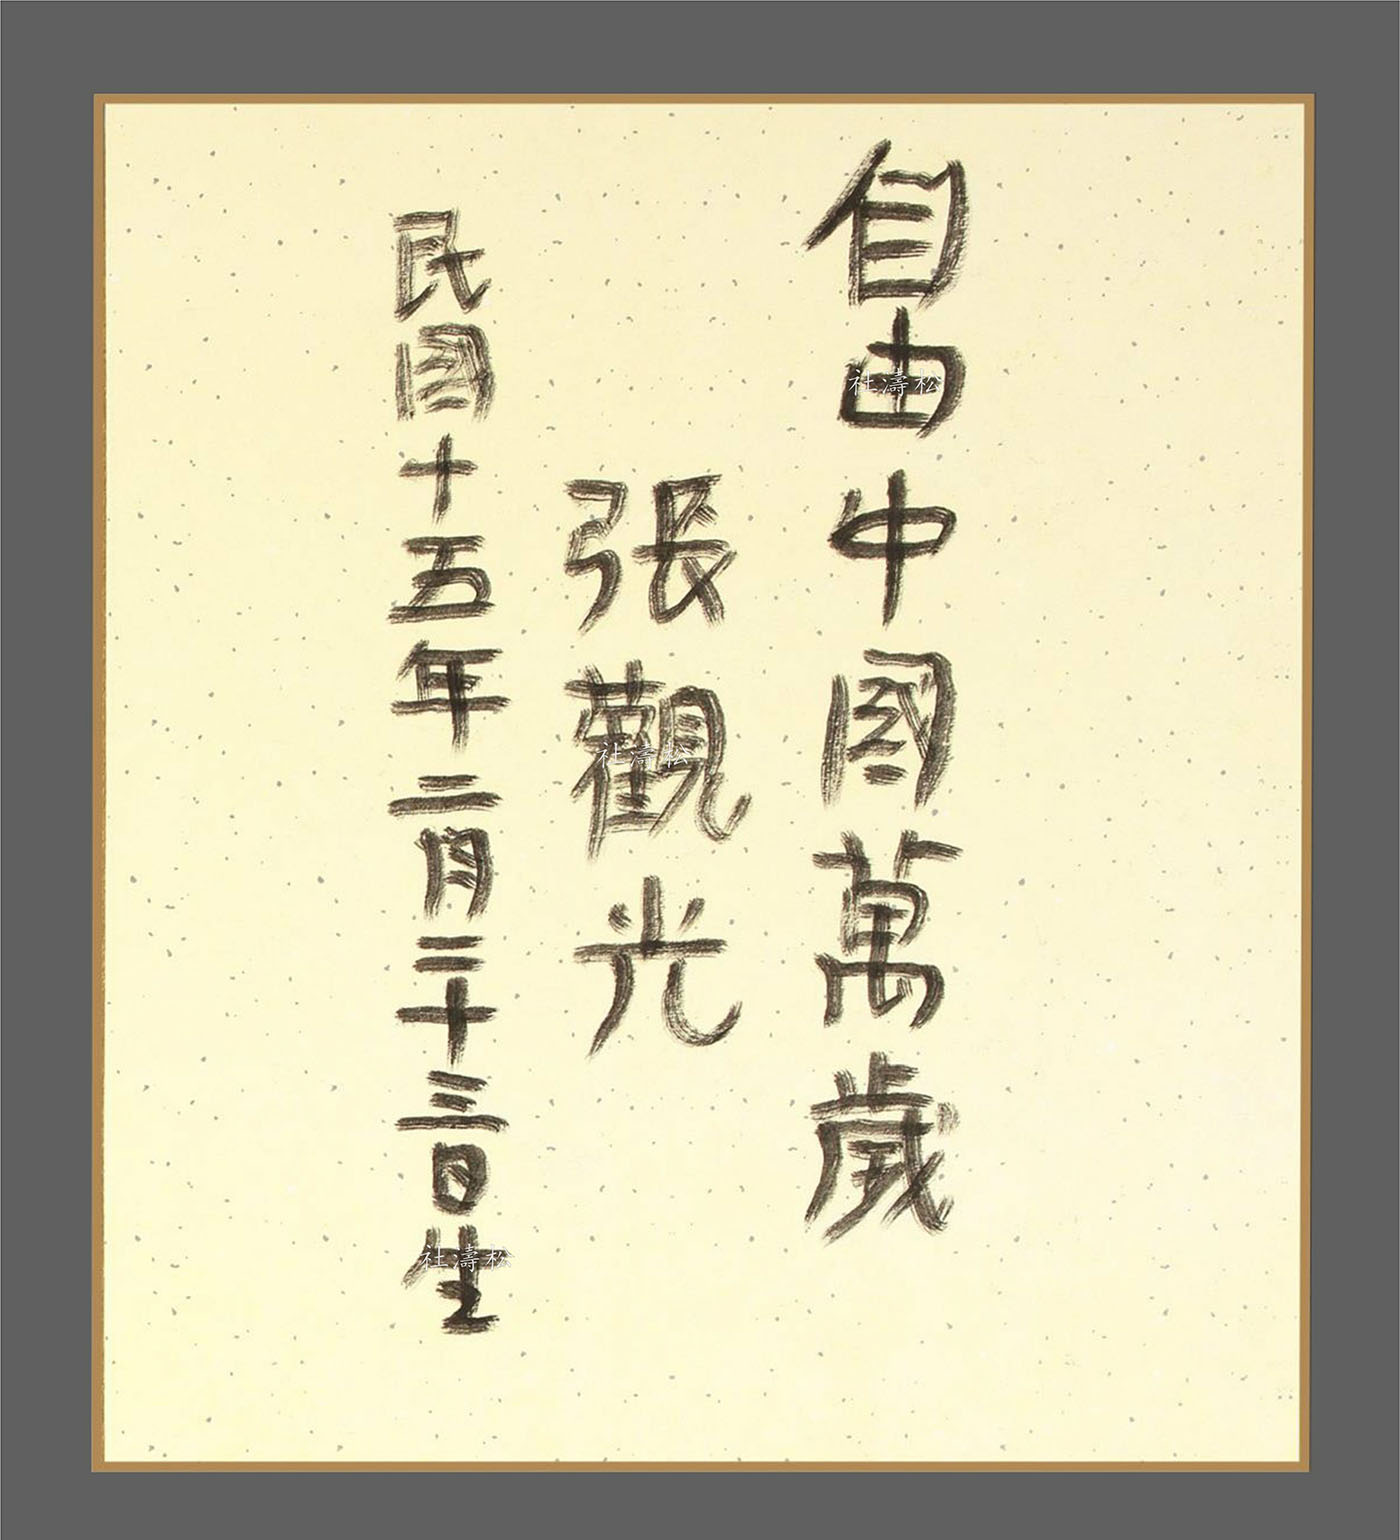 自由中國萬歲
張觀光
民國十五年二月二十三日生
社濤松
社濤松
社濤松